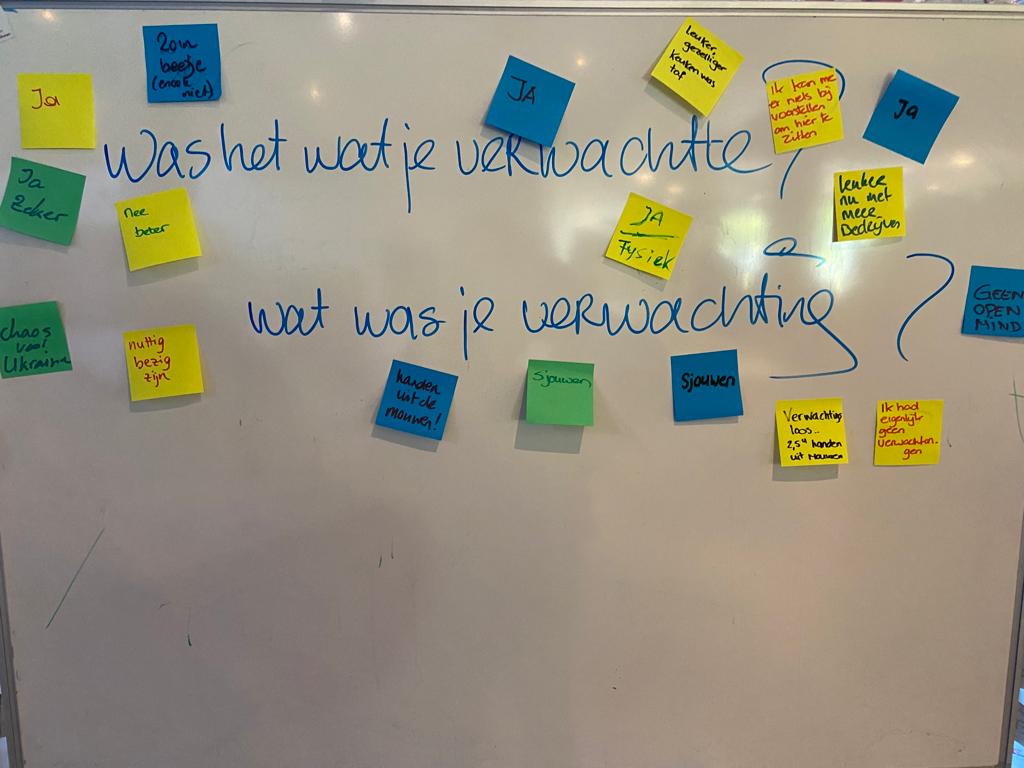 Ja
zo'n
beetje
niet)
JA
leuker,
gezelliger
keuken was
top
Ik kan me
er niets bij
voorstellen
om hier te
zitten
Ja
Was het wat je verwachtte?
Ja
Zeker
Nee
beter
JA
Fysiek
leuker
nu met
meer
Bedrijven
wat was je verwachting?
GEEN
OPEN
MIND
chaos
voor
Ukraine
nuttig
bezig
zijn
handen
uit de
mouwen!
Sjouwen
Sjouwen
Verwachting
loos..
handen
uit Mouwen
Ik had
eigenlijk
geen
verwachtin-
gen